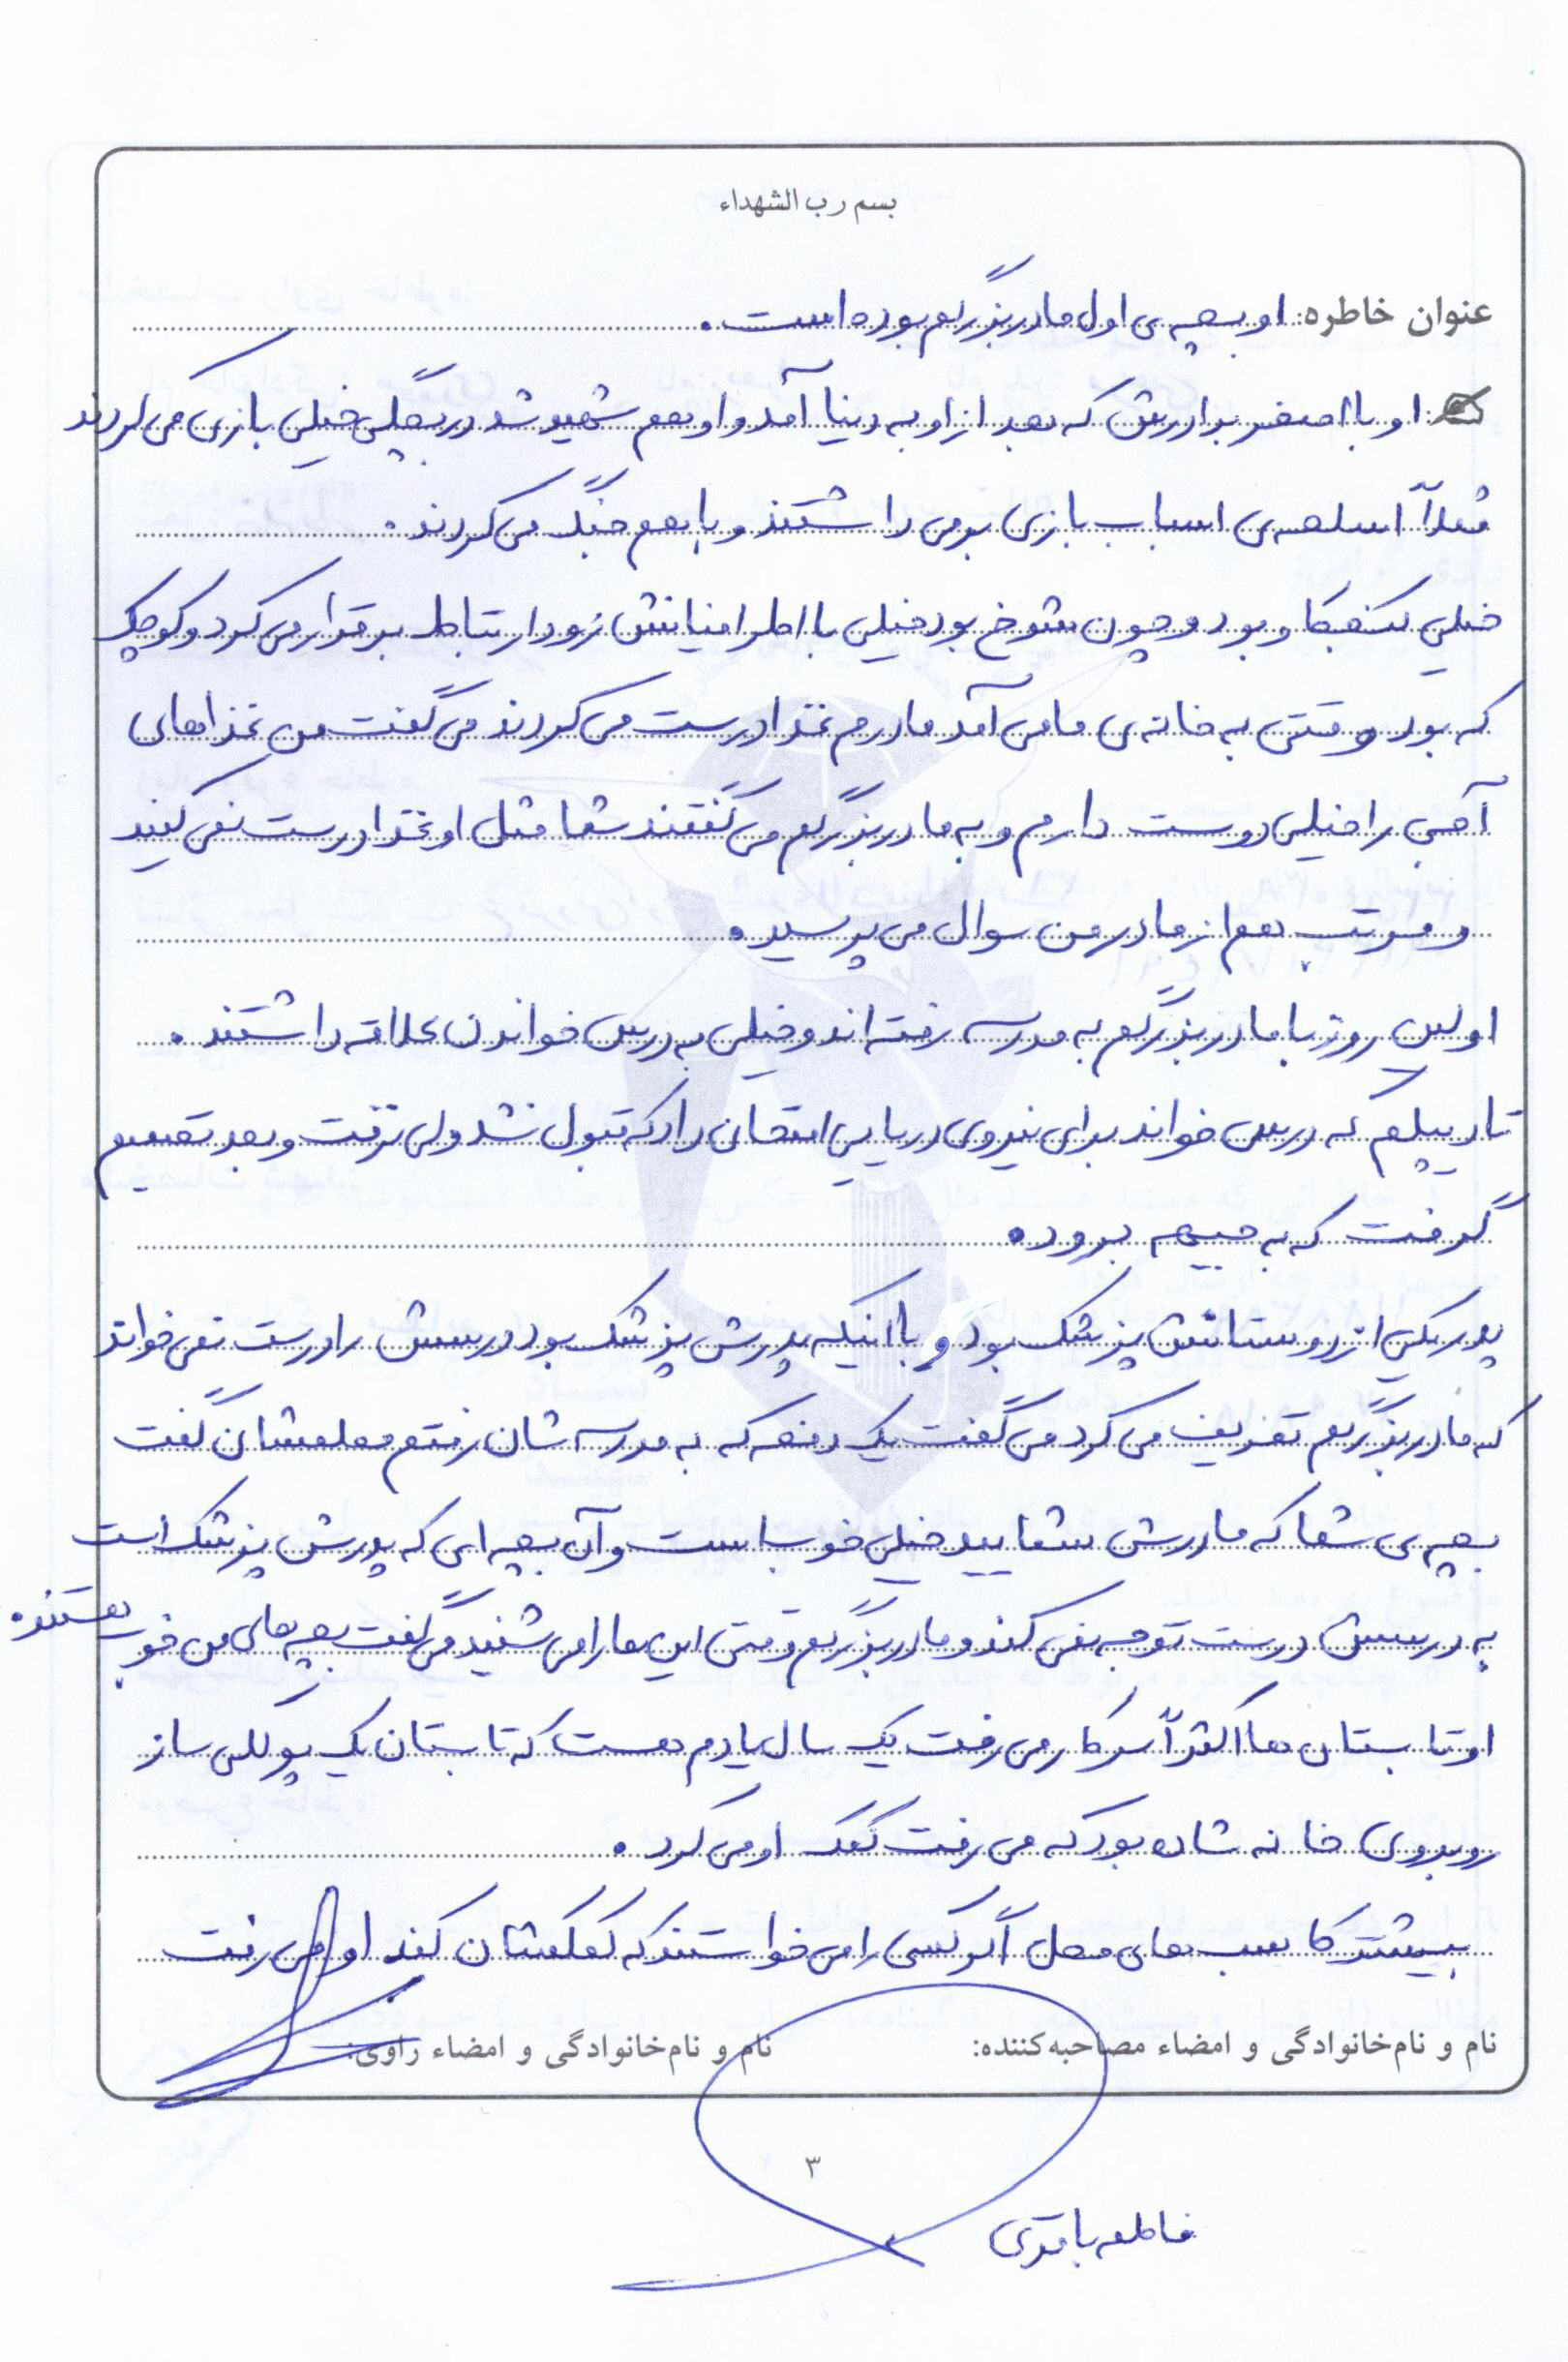 بسم رب الشهداء
عنوان خاطره: او بچه ی اول مادربزرگم بوده است.
او با اصغر برادرش که بعد از او به دنیا آمد و او هم شهید شد در بچگی خیلی بازی می کردند
مثلاً اسلحه ی اسباب بازی برمی داشتند و باهم جنگ می کردند.
خیلی کنجکاو بود و چون شوخ بود خیلی با اطرافیانش زود ارتباط برقرار می کرد و کوچک
که بود وقتی به خانه ی ما می آمد مادرم غذا درست می کردند می گفت من غذاهای
آجی را خیلی دوست دارم و به مادربزرگم می گفتند شما مثل او غذا درست نمی کنید
و مرتب هم از مادر من سوال می پرسید.
اولین روز با مادربزرگم به مدرسه رفته اند و خیلی به درس خواندن علاقه داشتند.
تا دیپلم که درس خواند برای نیروی دریایی امتحان داد که قبول نشد ولی نرفت و بعد تصمیم
گرفت که به جبهه برود.
پدر یکی از دوستانش پزشک بود و با اینکه پدرش پزشک بود درسش را درست نمی خواند
که مادربزرگم تعریف می کرد می گفت یک دفعه که به مدرسه شان رفتم معلمشان گفت
بچه ی شما که مادرش شمایید خیلی خوب است و آن بچه ای که پدرش پزشک است
به درسش درست توجه نمی کند و مادربزرگم وقتی این ها را می شنید می گفت بچه های من خوب هستند.
او تابستان ها اکثراً سرکار می رفت یک سال یادم هست که تابستان یک پوکلی ساز
روبروی خانه شان بود که می رفت کمک او می کرد.
بیشتر کاسب های محل اگر کسی را می خواستند که کمکشان کند او می رفت
نام و نام خانوادگی و امضاء مصاحبه کننده: نام و نام خانوادگی و امضاء راوی:
۳
فاطمه باقری